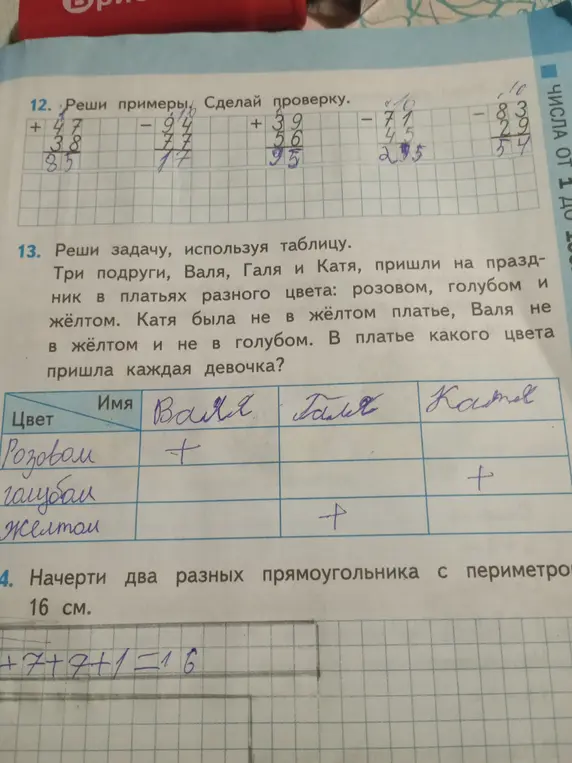 12. Реши примеры. Сделай проверку.
+ 47 - 94 + 39 - 71 - 83
38 77 56 45 29
85 17 95 54
ЧИСЛА ОТ 1 ДО
13. Реши задачу, используя таблицу.
Три подруги, Валя, Галя и Катя, пришли на празд-
ник в платьях разного цвета: розовом, голубом и
жёлтом. Катя была не в жёлтом платье, Валя не
в жёлтом и не в голубом. В платье какого цвета
пришла каждая девочка?
Имя
Цвет
Валя Галя Катя
Розовом +
голубом +
Желтом +
4. Начерти два разных прямоугольника с периметро
16 см.
+7+7+1=16